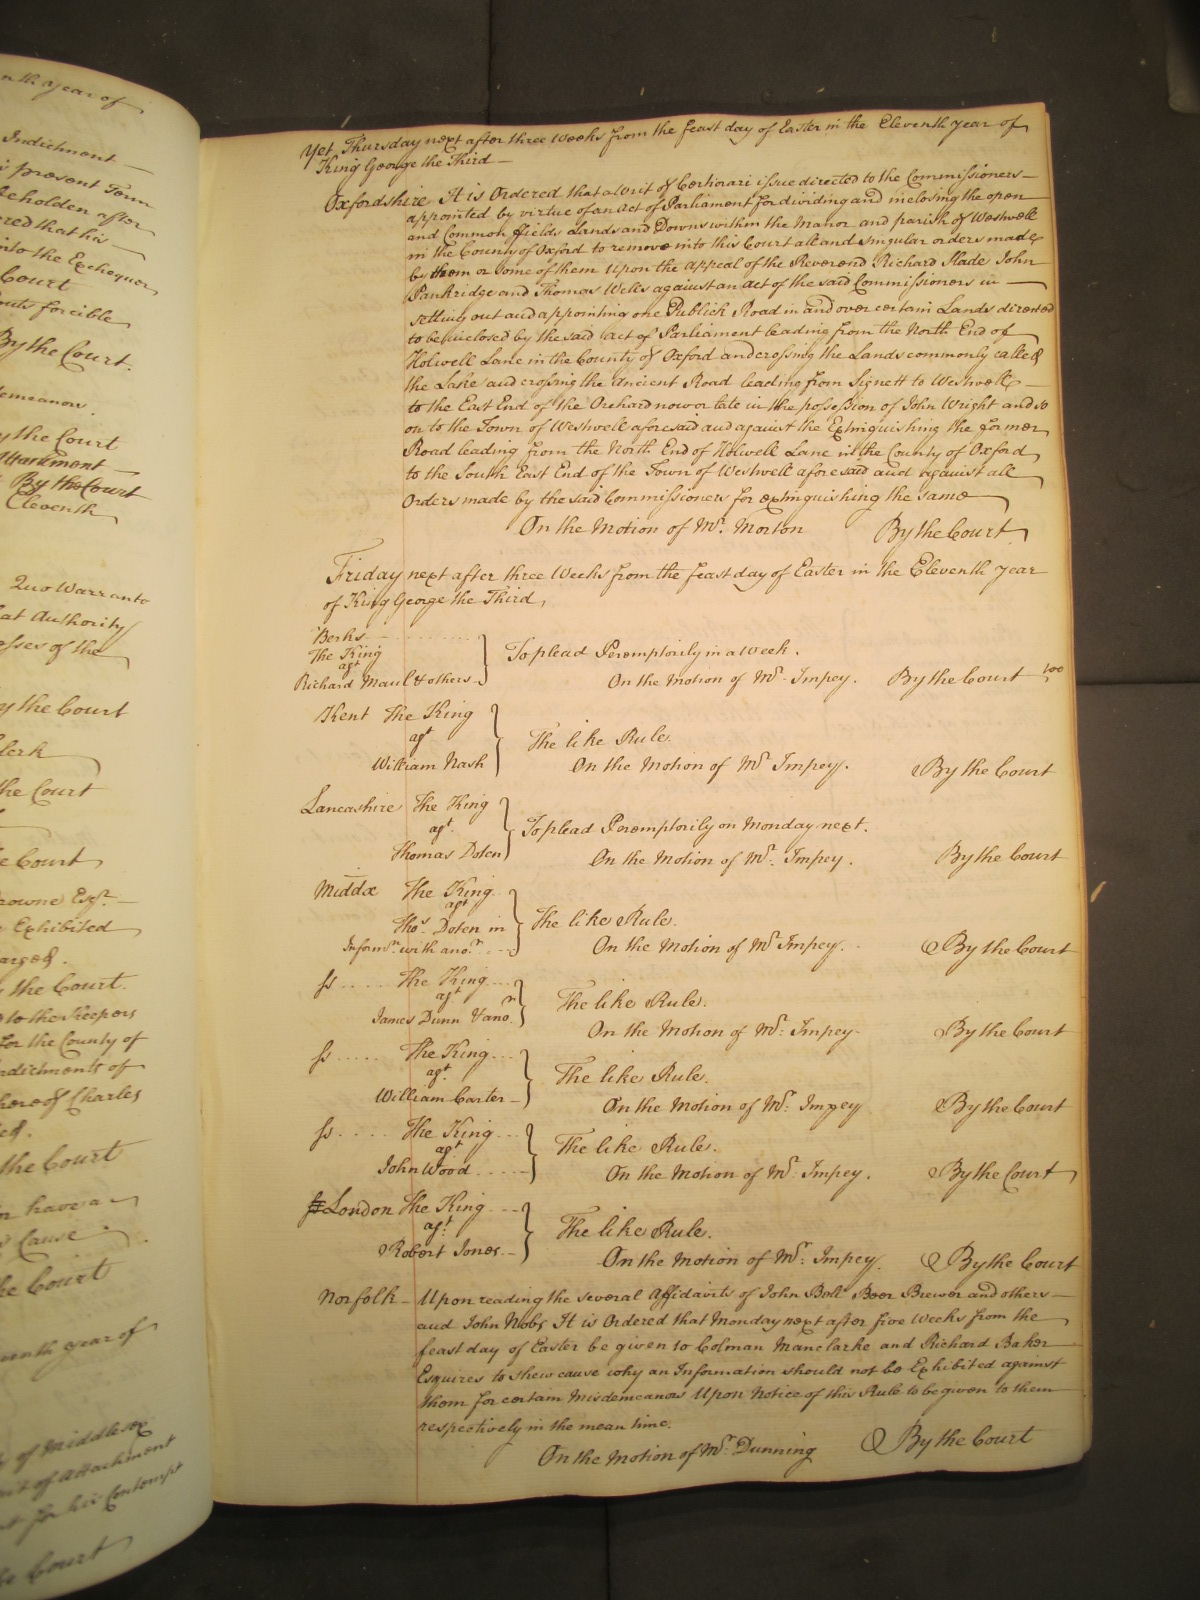 nth year of
Indictment
present Term
beholden after
red that his
into the Exchequer
Court
forcible
By the Court.
demeanor.
the Court
Attachment
By the Court
Eleventh
Quo Warranto
at Authority
of the
the Court
Clerk
the Court
Court
rowne Esqr.
Exhibited
arged.
the Court.
to the Keepers
for the County of
ndictments of
hereof Charles
the Court
have a
Cause
the Court
nth year of
of Middlesex
of Attachment
for his Contempt
Court
Yet Thursday next after three Weeks from the feast day of Easter in the Eleventh year of
King George the Third
Oxfordshire It is Ordered that a Writ of Certiorari issue directed to the Commissioners
appointed by virtue of an Act of Parliament for dividing and inclosing the open
and Common fields Lands and Downs within the Manor and parish of Westwell
in the County of Oxford to remove into this Court all and singular orders made
by them or some of them upon the appeal of the Reverend Richard Slade John
Pankridge and Thomas Wells against an act of the said Commissioners in
setting out and appointing one Publick Road in and over certain Lands directed
to be inclosed by the said act of Parliament leading from the North End of
Holwell Lane in the County of Oxford and crossing the Lands commonly called
the Lake and crossing the Ancient Road leading from Signett to Westwell
to the East End of the Orchard now or late in the possession of John Wright and so
on to the Town of Westwell aforesaid and against the Extinguishing the former
Road leading from the North End of Holwell Lane in the County of Oxford
to the South East End of the Town of Westwell aforesaid and against all
Orders made by the said Commissioners for extinguishing the same
On the Motion of Mr. Morton By the Court
Friday next after three Weeks from the feast day of Easter in the Eleventh year
of King George the Third,
Berks
The King
agt
Richard Maul & others
To plead Peremptorily in a week.
On the Motion of Mr. Impey. By the Court
Kent The King
agt
William Nash
The like Rule.
On the Motion of Mr. Impey. By the Court
Lancashire The King
agt.
Thomas Doten
To plead Peremptorily on Monday next.
On the Motion of Mr. Impey. By the Court
Middx The King
agt
Thos. Doten in
Informn. with anor.
The like Rule.
On the Motion of Mr. Impey. By the Court
ss The King
agt
James Dunn & anor.
The like Rule.
On the Motion of Mr. Impey. By the Court
ss The King
agt.
William Carter
The like Rule.
On the Motion of Mr. Impey By the Court
ss The King
agt
John Wood
The like Rule.
On the Motion of Mr. Impey. By the Court
London The King
agt.
Robert Jones
The like Rule.
On the Motion of Mr. Impey. By the Court
Norfolk Upon reading the several Affidavits of John Bolt Beer Brewer and others
and John Nobs It is Ordered that Monday next after five Weeks from the
feast day of Easter be given to Colman Manclarke and Richard Baker
Esquires to shew cause why an Information should not be Exhibited against
them for certain Misdemeanors Upon Notice of this Rule to be given to them
respectively in the mean time.
On the Motion of Mr. Dunning By the Court